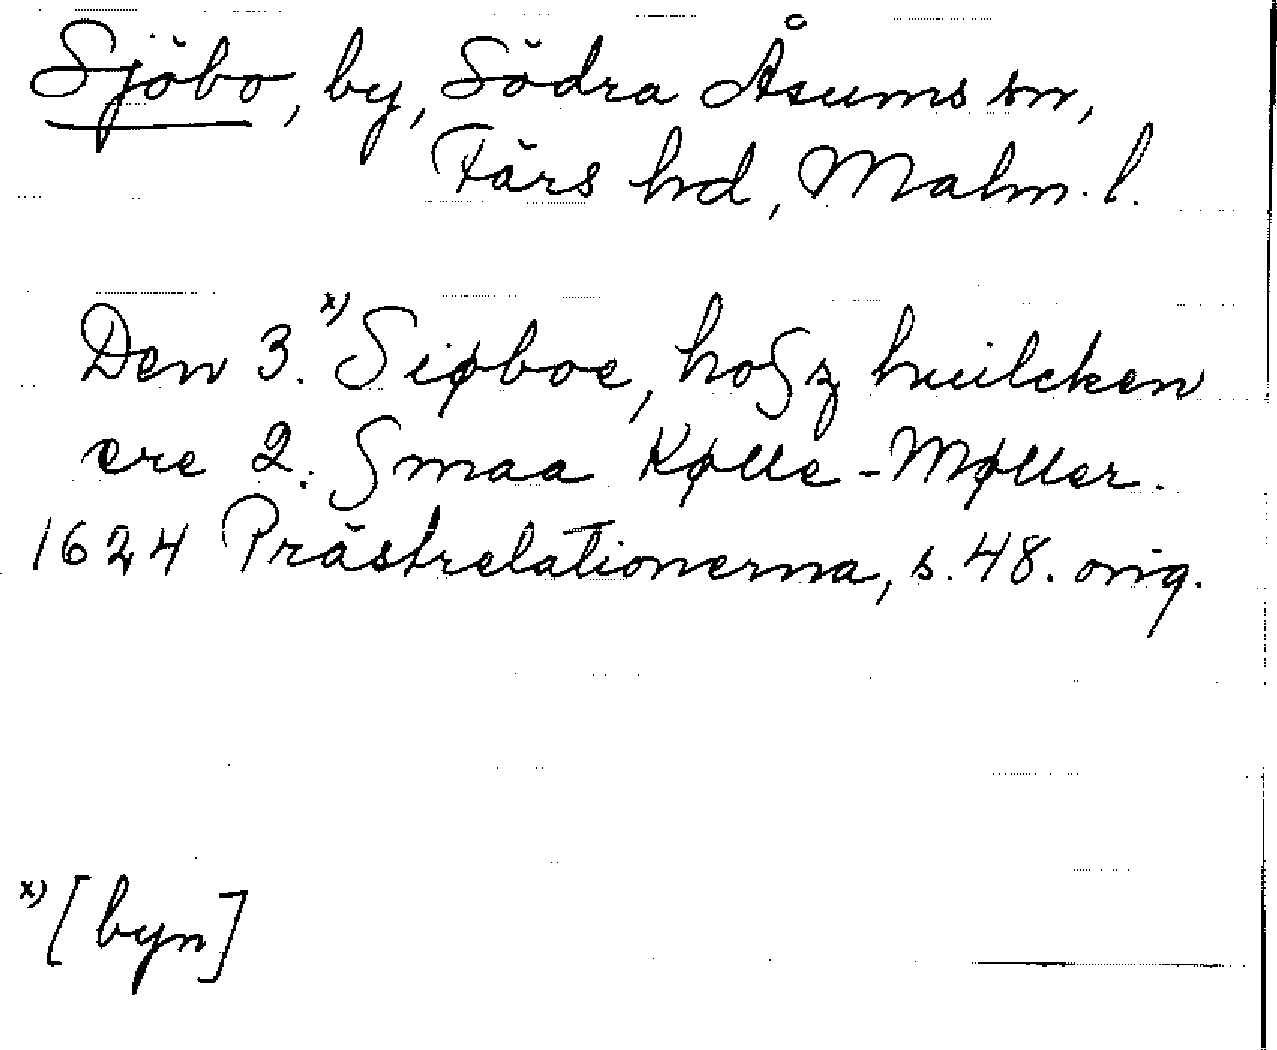 Sjöbo, by, Södra Åsums sn,
Färs hd, Malm. l.
Den 3. x) Siøboe, hoſz huilcken
ere 2. Smaa Kølle-Møller.
1624 Prästrelationerna, s. 48. orig.
x) [byn]